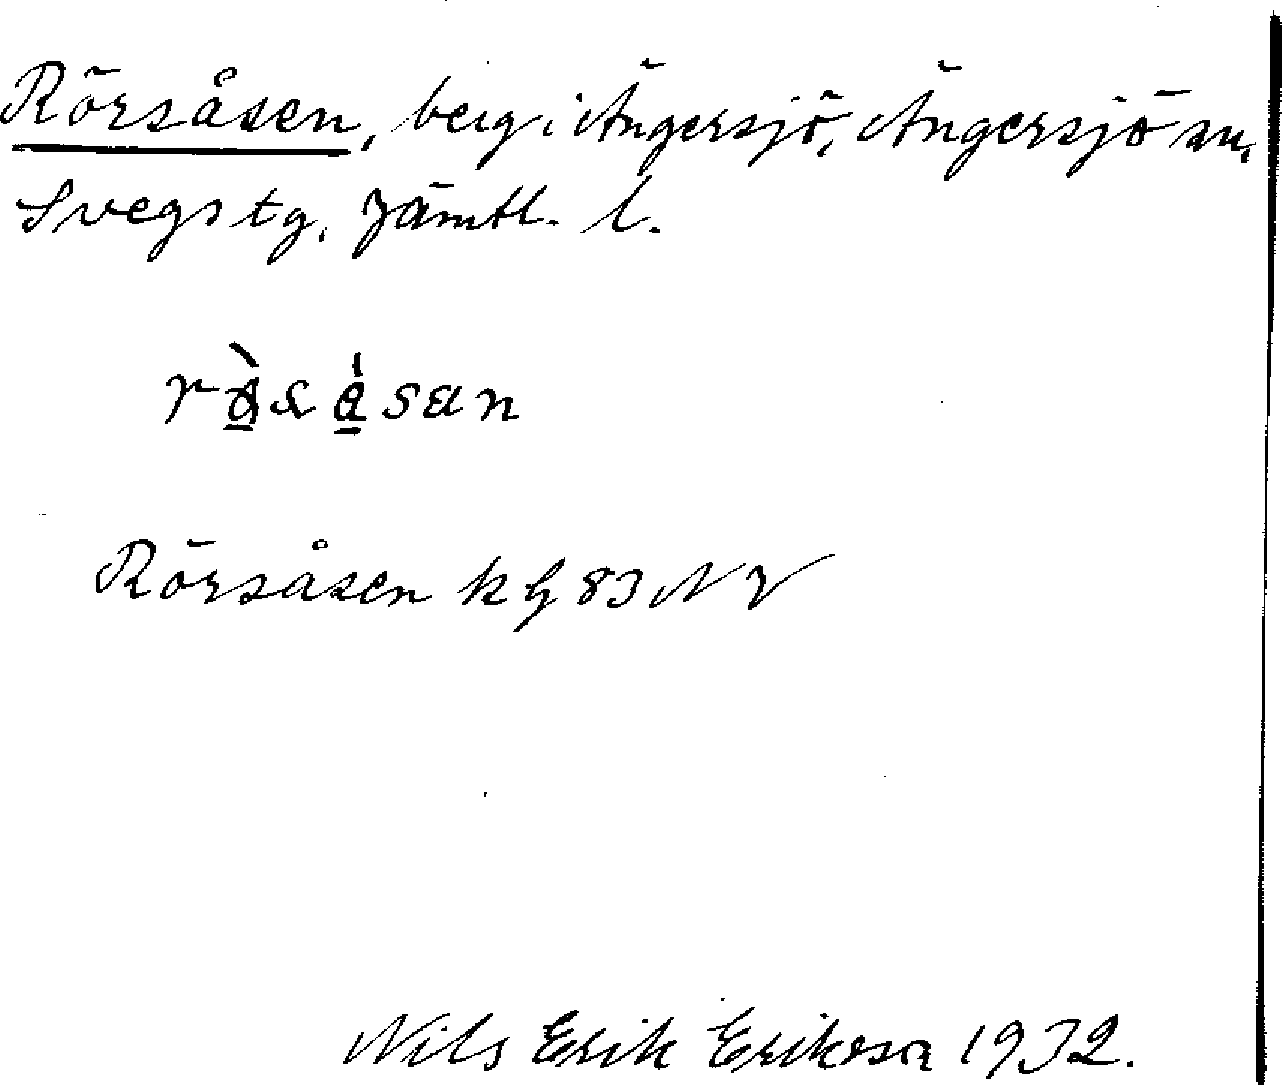 Rörsåsen, berg i Ängersjö, Ängersjö sn,
Svegs tg, Jämtl. l.
Rörsåsen kg 83 NV
Nils Erik Erikson 1932.